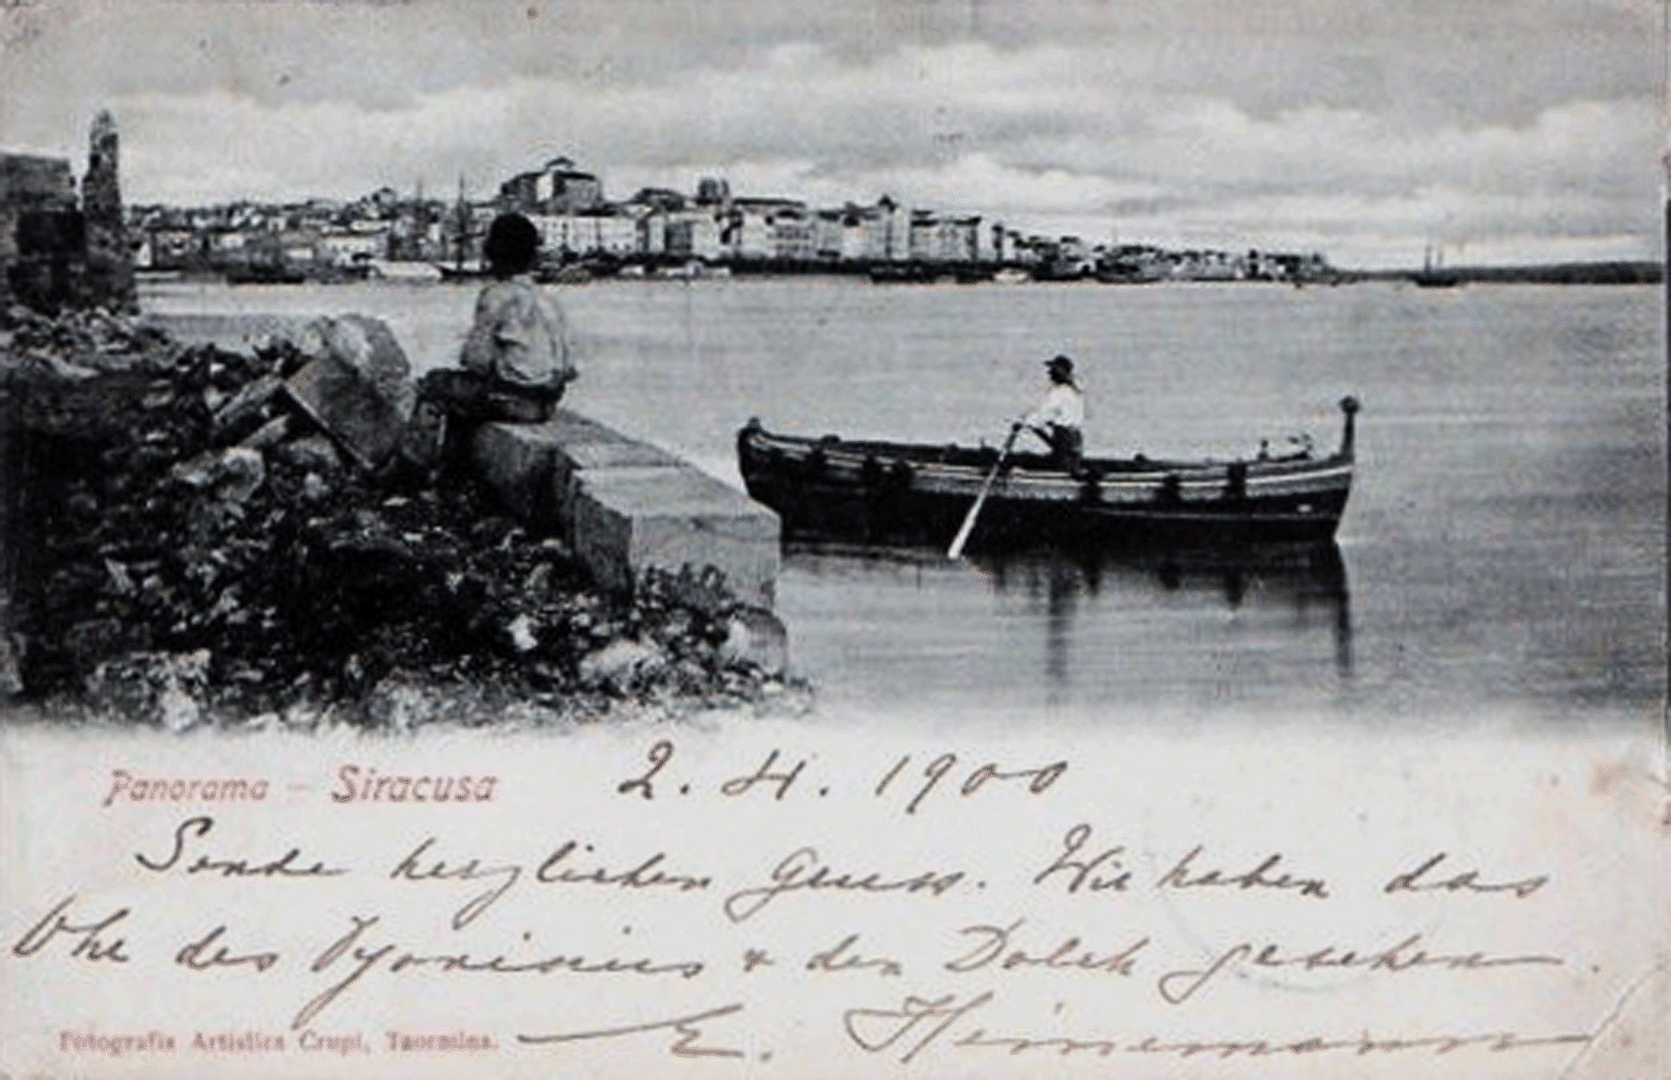 Panorama - Siracusa
2. 4. 1900
Sende herzlichen Gruss. Wir haben das
Ohr des Dyonisius & den Dolch gesehen.
E. Heinemann
Fotografia Artistica Crupi, Taormina.